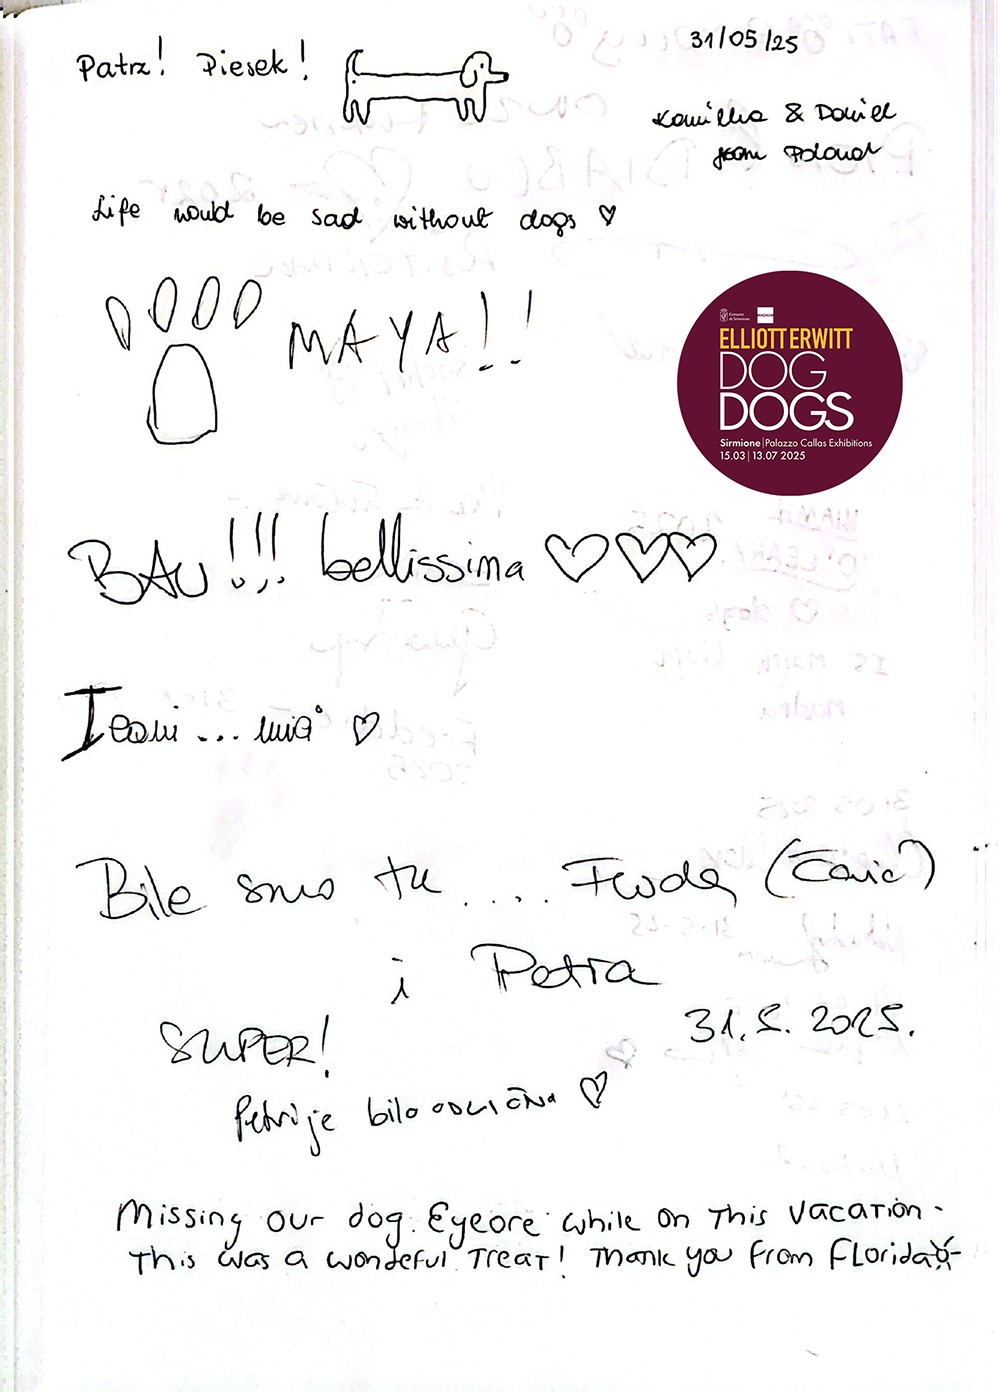 Patrz! Piesek!
31/05/25
Kamilka & Daniel
from Poland
Life would be sad without dogs ♡
MAYA!!
Comune di Sirmione
MAGNUM
ELLIOTT ERWITT
DOG
DOGS
Sirmione | Palazzo Callas Exhibitions
15.03 | 13.07 2025
BAU!!! bellissima ♡♡♡
... ♡
Bile smo tu ....
i Petra
31.5.2025.
SUPER!
Petri je bilo odlično ♡
Missing our dog Eyeore while on This vacation.
This was a wonderful Treat! Thank you from Florida